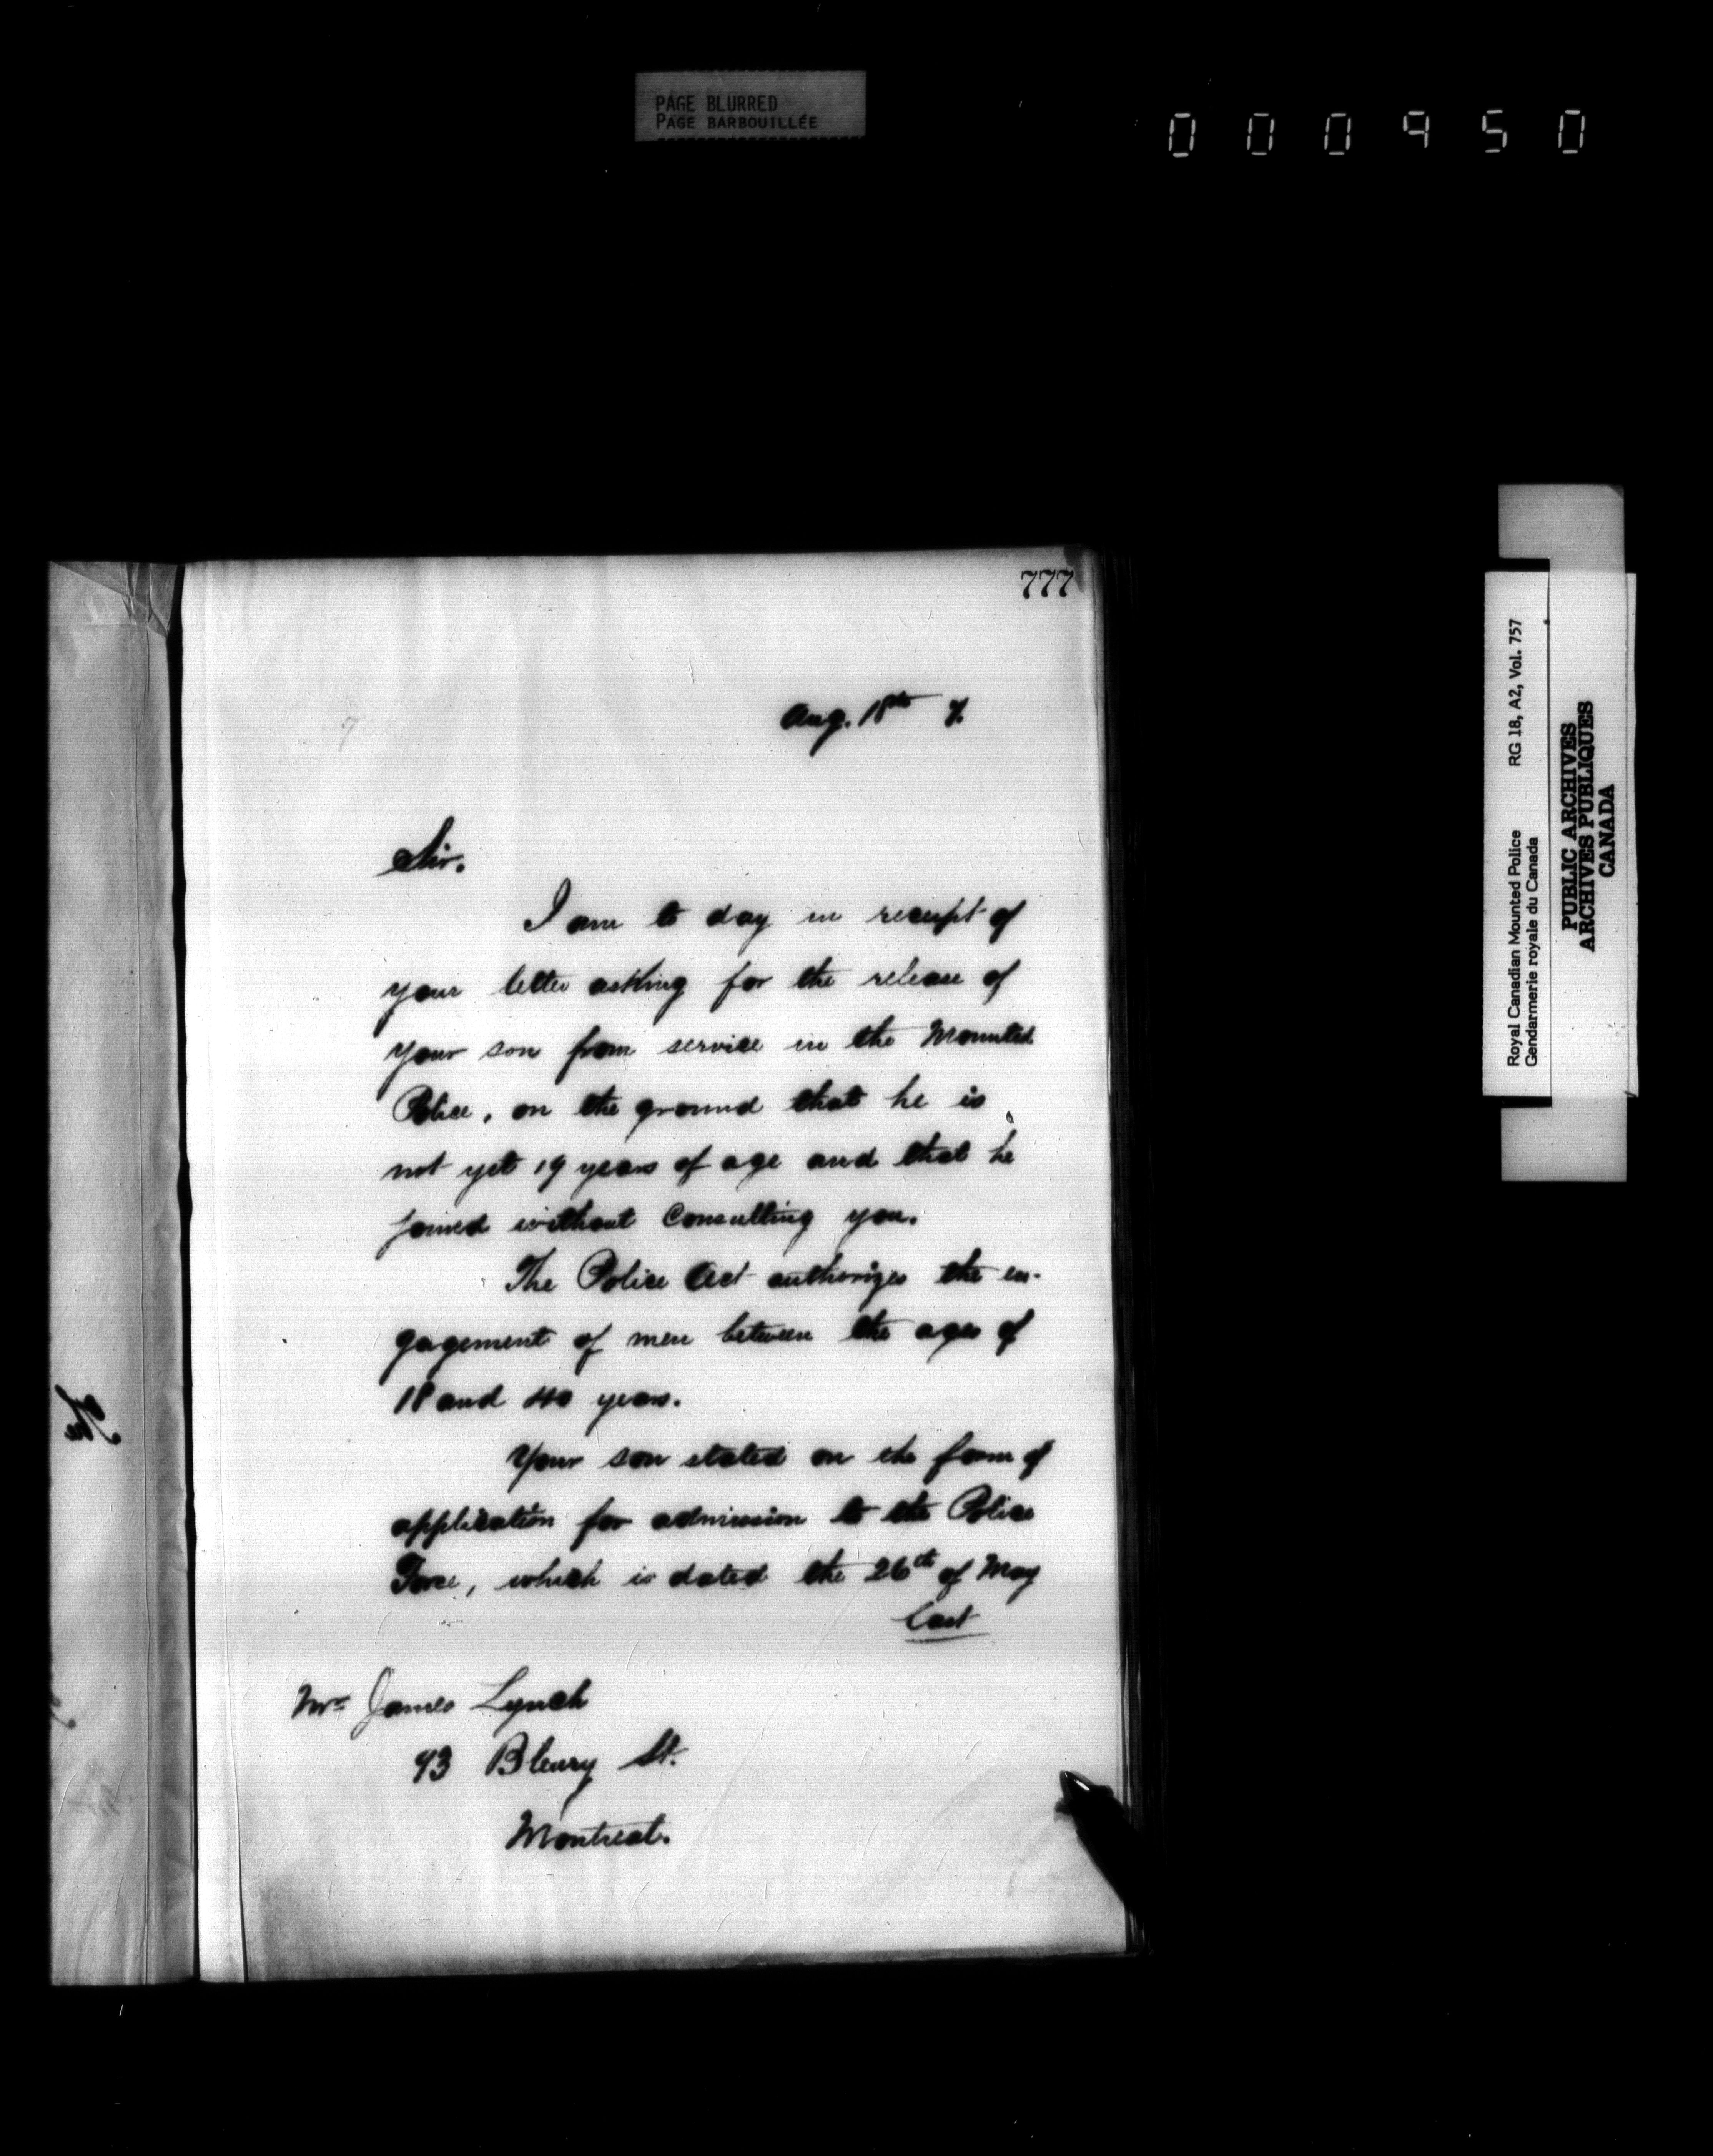 PAGE BLURRED
PAGE BARBOUILLÉE
000950
777
Aug. 18th
Sir.
I am to day in receipt of
your letter asking for the release of
your son from service in the Mounted
Police, on the ground that he is
not yet 19 years of age and that he
joined without consulting you.
The Police Act authorizes the en-
gagement of men between the ages of
18 and 40 years.
Your son stated on the form of
application for admission to the Police
Force, which is dated the 26th of May
last
Mr. James Lynch
93 Bleury St.
Montreal.
Royal Canadian Mounted Police RG 18, A2, Vol. 757
Gendarmerie royale du Canada
PUBLIC ARCHIVES
ARCHIVES PUBLIQUES
CANADA